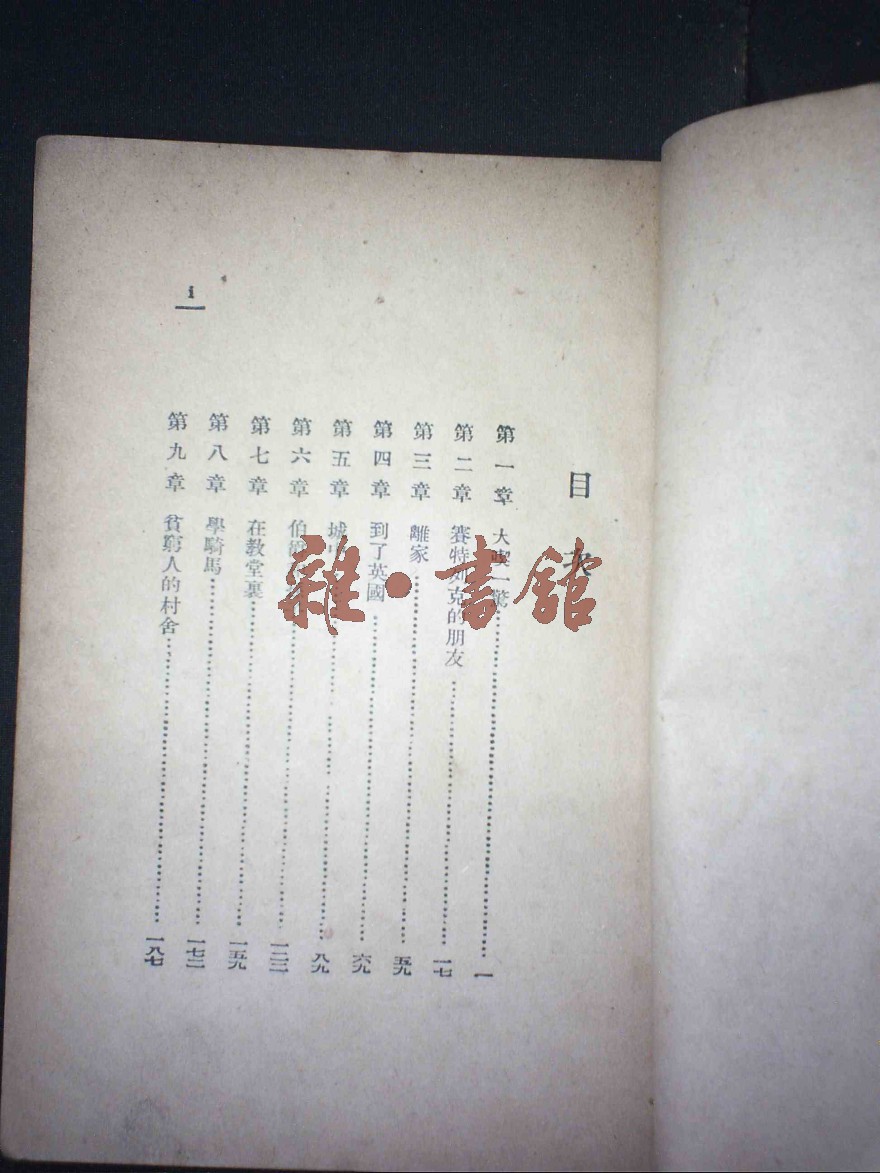 目次
第一章 大喫一驚 一
第二章 賽特列克的朋友 一七
第三章 離家 五九
第四章 到了英國 六九
第五章 城中 八九
第六章 伯爵
第七章 在教堂裏 一五九
第八章 學騎馬 一七二
第九章 貧窮人的村舍 一八七
i
雜·書館